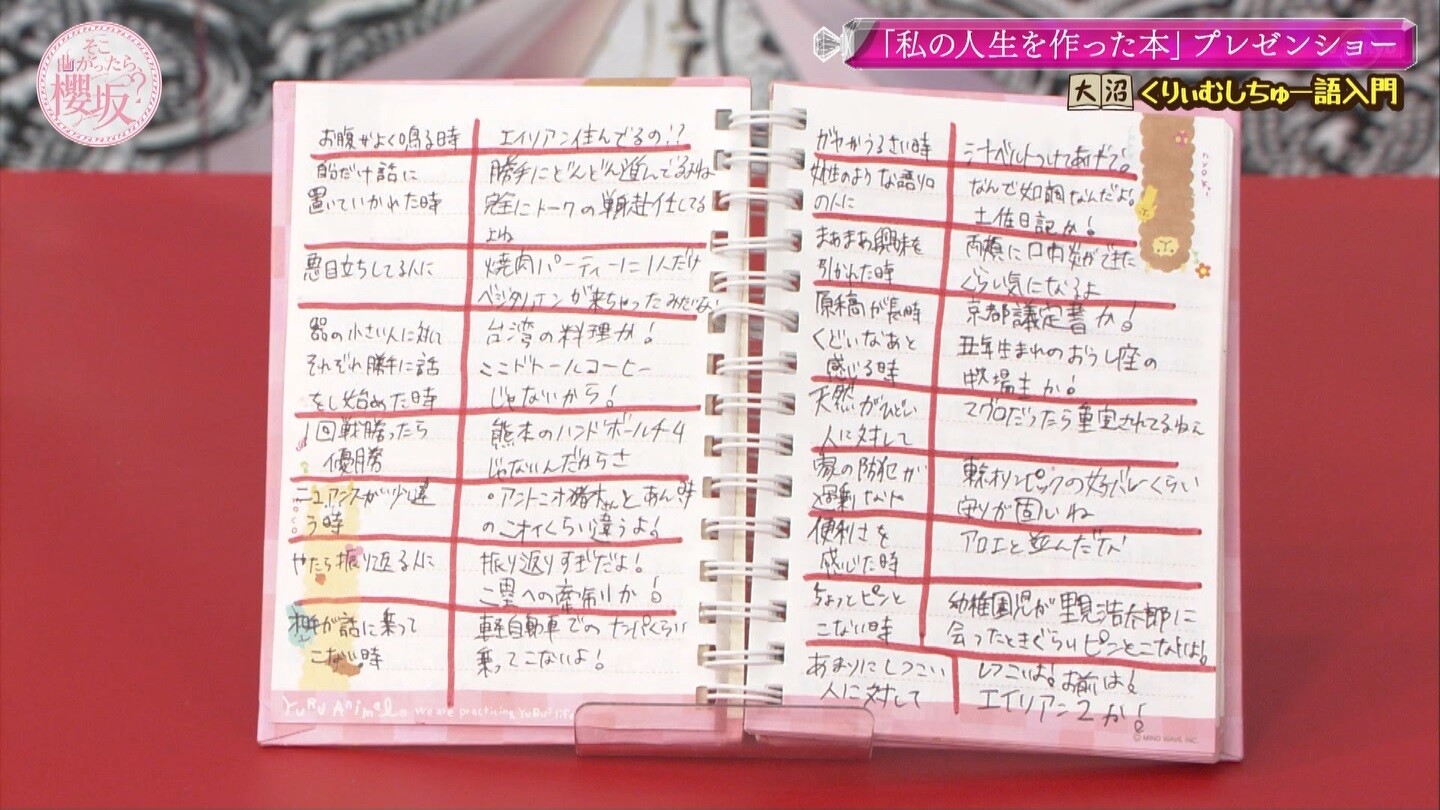 そこ
曲がったら、
櫻坂?
「私の人生を作った本」プレゼンショー
大沼 くりぃむしちゅー語入門
お腹がよく鳴る時 エイリアン住んでるの!?
自分だけ話に 勝手にどんどん進んでるよね
置いていかれた時 完全にトークの単身赴任してる
よね
悪目立ちしてる人に 焼肉パーティーに1人だけ
ベジタリアンが来ちゃったみたいな
器の小さい人に対して 台湾の料理か!
それぞれ勝手に話 ここドトールコーヒー
をし始めた時 じゃないから!
1回戦勝ったら 熊本のハンドボールチーム
優勝 じゃないんだからさ
ニュアンスが少し違 アントニオ猪木さんとあん時
う時 のニオイくらい違うよ!
やたら振り返る人に 振り返りすぎだよ!
二塁への牽制か!
相手が話に乗って 軽自動車でのナンパくらい
こない時 乗ってこないよ!
YURU Animal
We are practicing YURU² life
ガヤがうるさい時 シートベルトつけてあげて。
女性のような語り口 なんで女口調なんだよ!
の人に 土佐日記か!
まあまあ興味を 両頬に口内炎ができた
引かれた時 ぐらい気になるよ
原稿が長時 京都議定書か!
くどいなあと 丑年生まれのおうし座の
感じる時 牧場主か!
天然がひどい マグロだったら重宝されてるねぇ
人に対して
家の防犯が オリンピックの女子バレーくらい
過剰な人 守りが固いね
便利さを アロエと並んだな
感じた時
ちょっとピンと 幼稚園児が里見浩太郎に
こない時 会ったときぐらいピンとこないよ!
あまりにしつこい しつこいよ!お前は!
人に対して エイリアン2か!
© MIND WAVE INC.